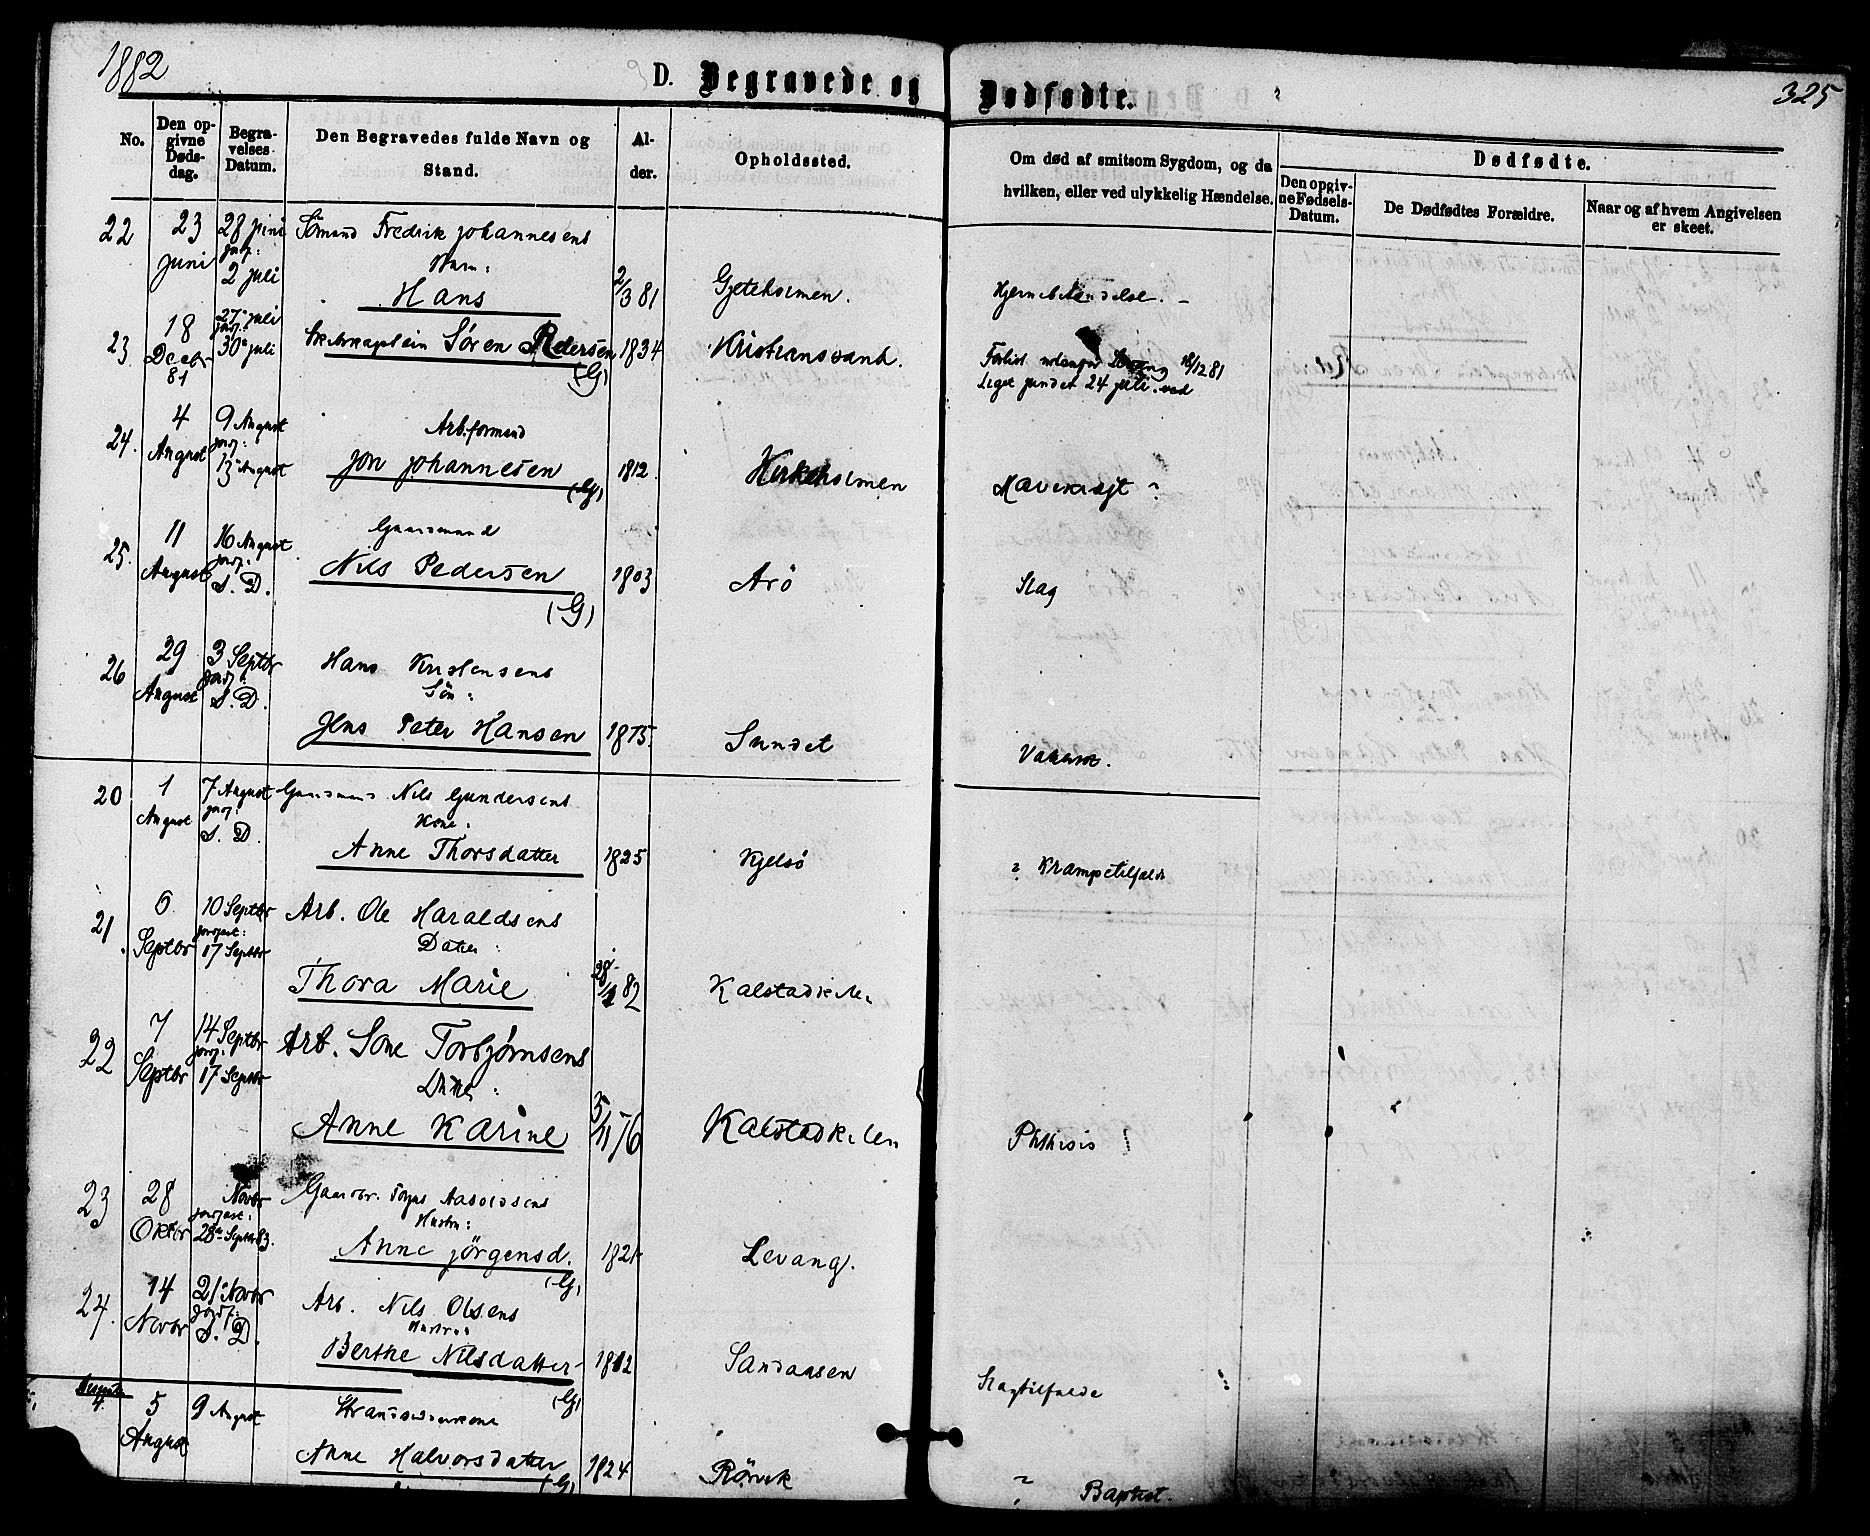 1882
D. Begravede og Dødfødte.
325
No.
Den opgivne Dødsdag.
Begravelses Datum.
Den Begravedes fulde Navn og Stand.
Alder.
Opholdssted.
Om død af smitsom Sygdom, og da hvilken, eller ved ulykkelig Hændelse.
Dødfødte.
Den opgivne Fødsels-Datum.
De Dødfødtes Forældre.
Naar og af hvem Angivelsen er skeet.
22 23 Juni 28 Juni jordf: 2 Juli Sömand Fredrik Johannesens
Barn:
Hans 2/3 81 Gjeteholmen. Hjernebetændelse. -
23. 18 Decbr 81 27 Juli jordf: 30 Juli Skibskaptein Sören Pedersen (G) 1834 Kristianssand. Forlist udenfor 18/12 81
Liget fundet 24 Juli. ved
24. 4 August 9 August jordf: 13 August Arb.formand
Jon Johannesen (G) 1812. Kirkeholmen Mavekræft ?
25. 11 August 16 August jordf: S. D. Gaardmand
Nils Pedersen (G) 1803 Arö Slag
26 29 August 3 Septbr jordf: S. D. Hans Kristensens
Sön:
Jens Peter Hansen 1875. Sundet
20 1 August 7 August jordf: S. D. Gaardmand Nils Gundersens
Kone:
Anne Thorsdatter 1825 Kjelsö ? Krampetilfælde
21. 6 Septbr 10 Septbr jordfæst: 17 Septbr Arb. Ole Haraldsens
Datter:
Thora Marie 28/1 82 Kalstadkilen
22 7 Septbr 14 Septbr jordf: 17 Septbr Arb. Sone Torbjørnsens
Datter:
Anne Karine 5/11 76 Kalstadkilen Phthisis
23 28 Oktbr Novbr jordfæst: 28 Septbr 83. Gaardbr. Aasoldsens
Hustru:
Anne Jörgensd. (G) 1821 Levang.
24. 14 Novbr 21 Novbr jordf: S. D. Arb. Nils Olsens
Hustru
Berthe Nilsdatter (G) 1812 Sandaasen Slagtilfælde
4. 5 August 9 August
Anne Halvorsdatter (G) 1824 Rörvik ? Baptist.